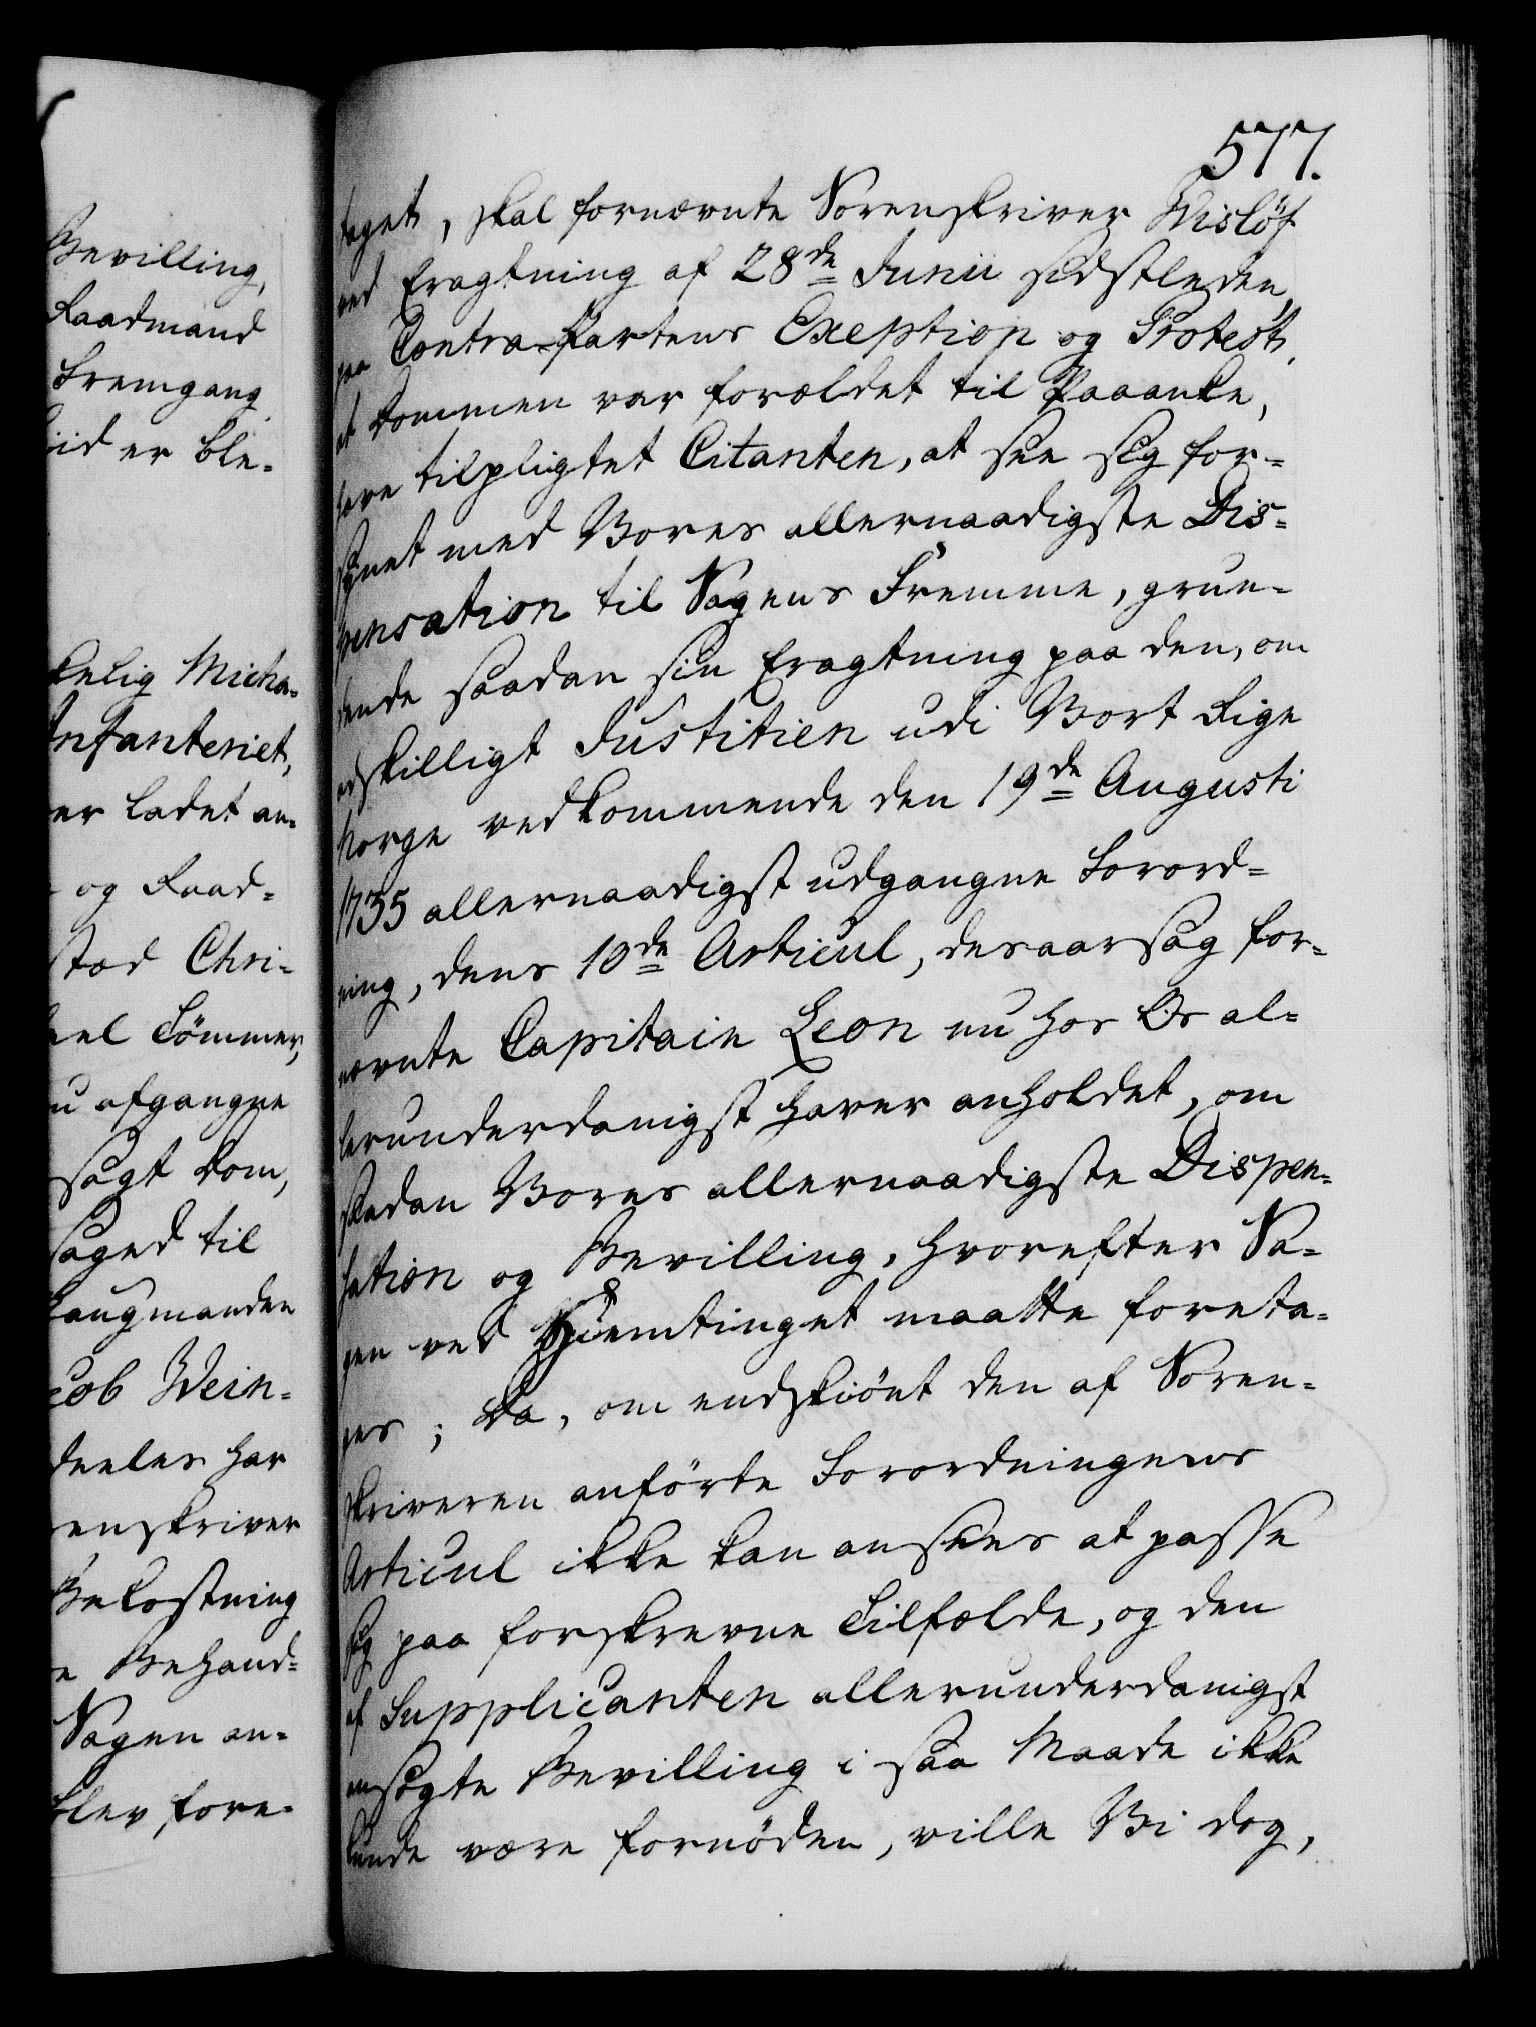 Bevilling,
Raadmand
Fremgang
tid er ble-
kelig Micha-
Infanteriet,
er ladet an-
- og Raad-
stad Chri-
el Tömmer,
u afgangne
sagt Dom,
saged til
Laugmanden
cob Wein-
deeles har
renskriver
Bekostning
e Behand-
Sagen an-
blev fore-
577.
taget, skal fornævnte Sorenskriver Wislöf
ved Eragtning af 28de Junii sidstleden,
paa Contra-Partens Exeption og Protest,
at Dommen var forældet til Paaanke,
have tilpligtet Citanten, at see sig for-
synet med Vores allernaadigste Dis-
pensation til Sagens Fremme, grun-
dende saadan sin Eragtning paa den, om
adskilligt Justitien udi Vort Rige
Norge vedkommende den 19de Augusti
1735 allernaadigst udgangne Forord-
ning, dens 10de Articul, desaarsag for-
nævnte Capitain Leon nu hos Os al-
lerunderdanigst haver anholdet, om
saadan Vores allernaadigste Dispen-
sation og Bevilling, hvorefter Sa-
gen ved Hiemtinget maatte foreta-
ges; Da, om endskiönt den af Soren-
skriveren anförte Forordningens
Articul ikke kan ansees at passe
sig paa forskrevne Tilfælde, og den
af Supplicanten allerunderdanigst
ansögte Bevilling i saa Maade ikke
kunde være fornöden, ville Vi dog,